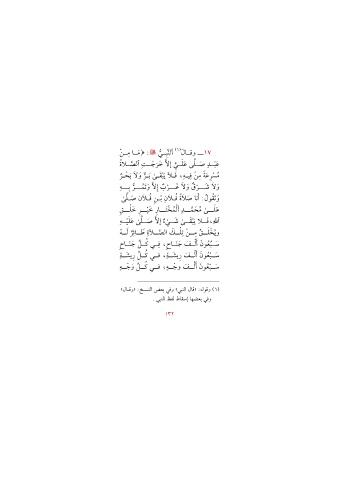 ١٧ــ وقَالَ(١) ٱلنَّبِيُّ ﷺ: «مَا مِنْ
عَبْدٍ صَلَّى عَلَيَّ إِلاَّ خَرَجَتِ ٱلصَّلاَةُ
مُسْرِعَةً مِنْ فِيهِ، فَلاَ يَبْقَىٰ بَرٌّ وَلاَ بَحْرٌ
وَلاَ شَرْقٌ وَلاَ غَرْبٌ إِلاَّ وَتَمُرُّ بِهِ
وَتَقُولُ: أَنَا صَلاَةُ فُلاَنِ بْنِ فُلاَنٍ صَلَّىٰ
عَلَىٰ مُحَمَّدٍ ٱلْمُخْتَارِ خَيْرِ خَلْقِ
ٱللهِ، فَلاَ يَبْقَىٰ شَيْءٌ إِلاَّ صَلَّى عَلَيْهِ
وَيُخْلَقُ مِنْ تِلْكَ ٱلصَّلاَةِ طَائِرٌ لَهُ
سَبْعُونَ أَلْفَ جَنَاحٍ، فِي كُلِّ جَنَاحٍ
سَبْعُونَ أَلْفَ رِيشَةٍ، فِي كُلِّ رِيشَةٍ
سَبْعُونَ أَلْفَ وَجْهٍ، فِي كُلِّ وَجْهٍ
(١) وقوله: «قال النبي» وفي بعض النسخ: «وقال»
وفي بعضها إسقاط لفظ النبي.
١٣٢